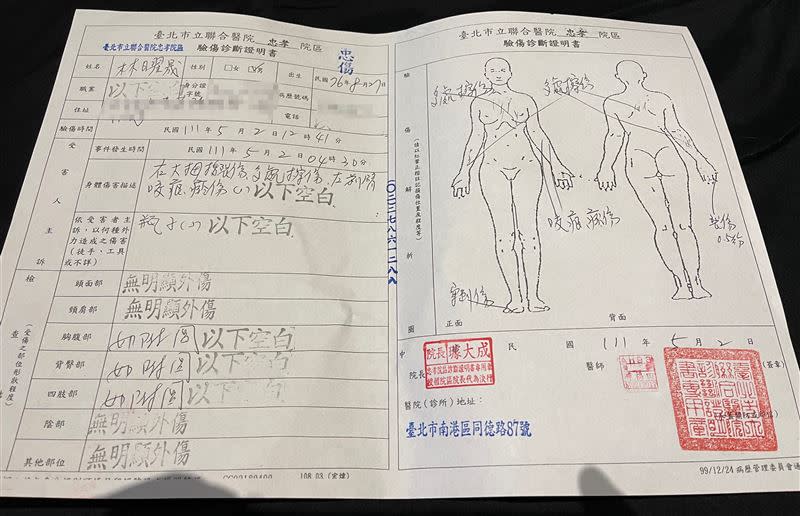 臺北市立聯合醫院 忠孝 院區
臺北市立聯合醫院忠孝院區
驗傷診斷證明書
忠傷
姓名 林曜晟 性別 □女 男 出生 民國76年8月27
職業 以下空白 身分證字號 病歷號碼
住址 電話
驗傷時間 民國 111 年 5 月 2 日 12 時 41 分
受害人主訴
事件發生時間 民國 111 年 5 月 2 日 04 時 30 分
身體傷害描述
右大拇指裂傷,多處擦傷,左前臂
咬痕瘀傷(1) 以下空白
依受害者主訴,以何種外力造成之傷害(徒手、工具或不詳)
瓶子(1) 以下空白
檢查
(受傷之部位形狀程度)
頭面部 無明顯外傷
頸肩部 無明顯外傷
胸腹部 如附圖 以下空白
背臀部 如附圖 以下空白
四肢部 如附圖 以下空白
陰部 無明顯外傷
其他部位 無明顯外傷
108.03
臺北市立聯合醫院 忠孝 院區
驗傷診斷證明書
驗傷解析圖
多處擦傷
多處擦傷
咬痕瘀傷
裂傷
0.5公分
正面
背面
中 民國 111 年 5 月 2 日
院長 璩大成
醫師
(簽章)
醫院(診所)地址:
臺北市南港區同德路87號
99/12/24 病歷管理委員會通